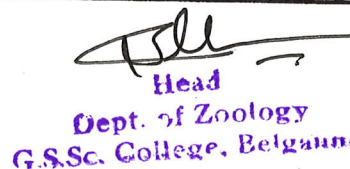 Head
Dept. of Zoology
G.S.Sc. College, Belgaum